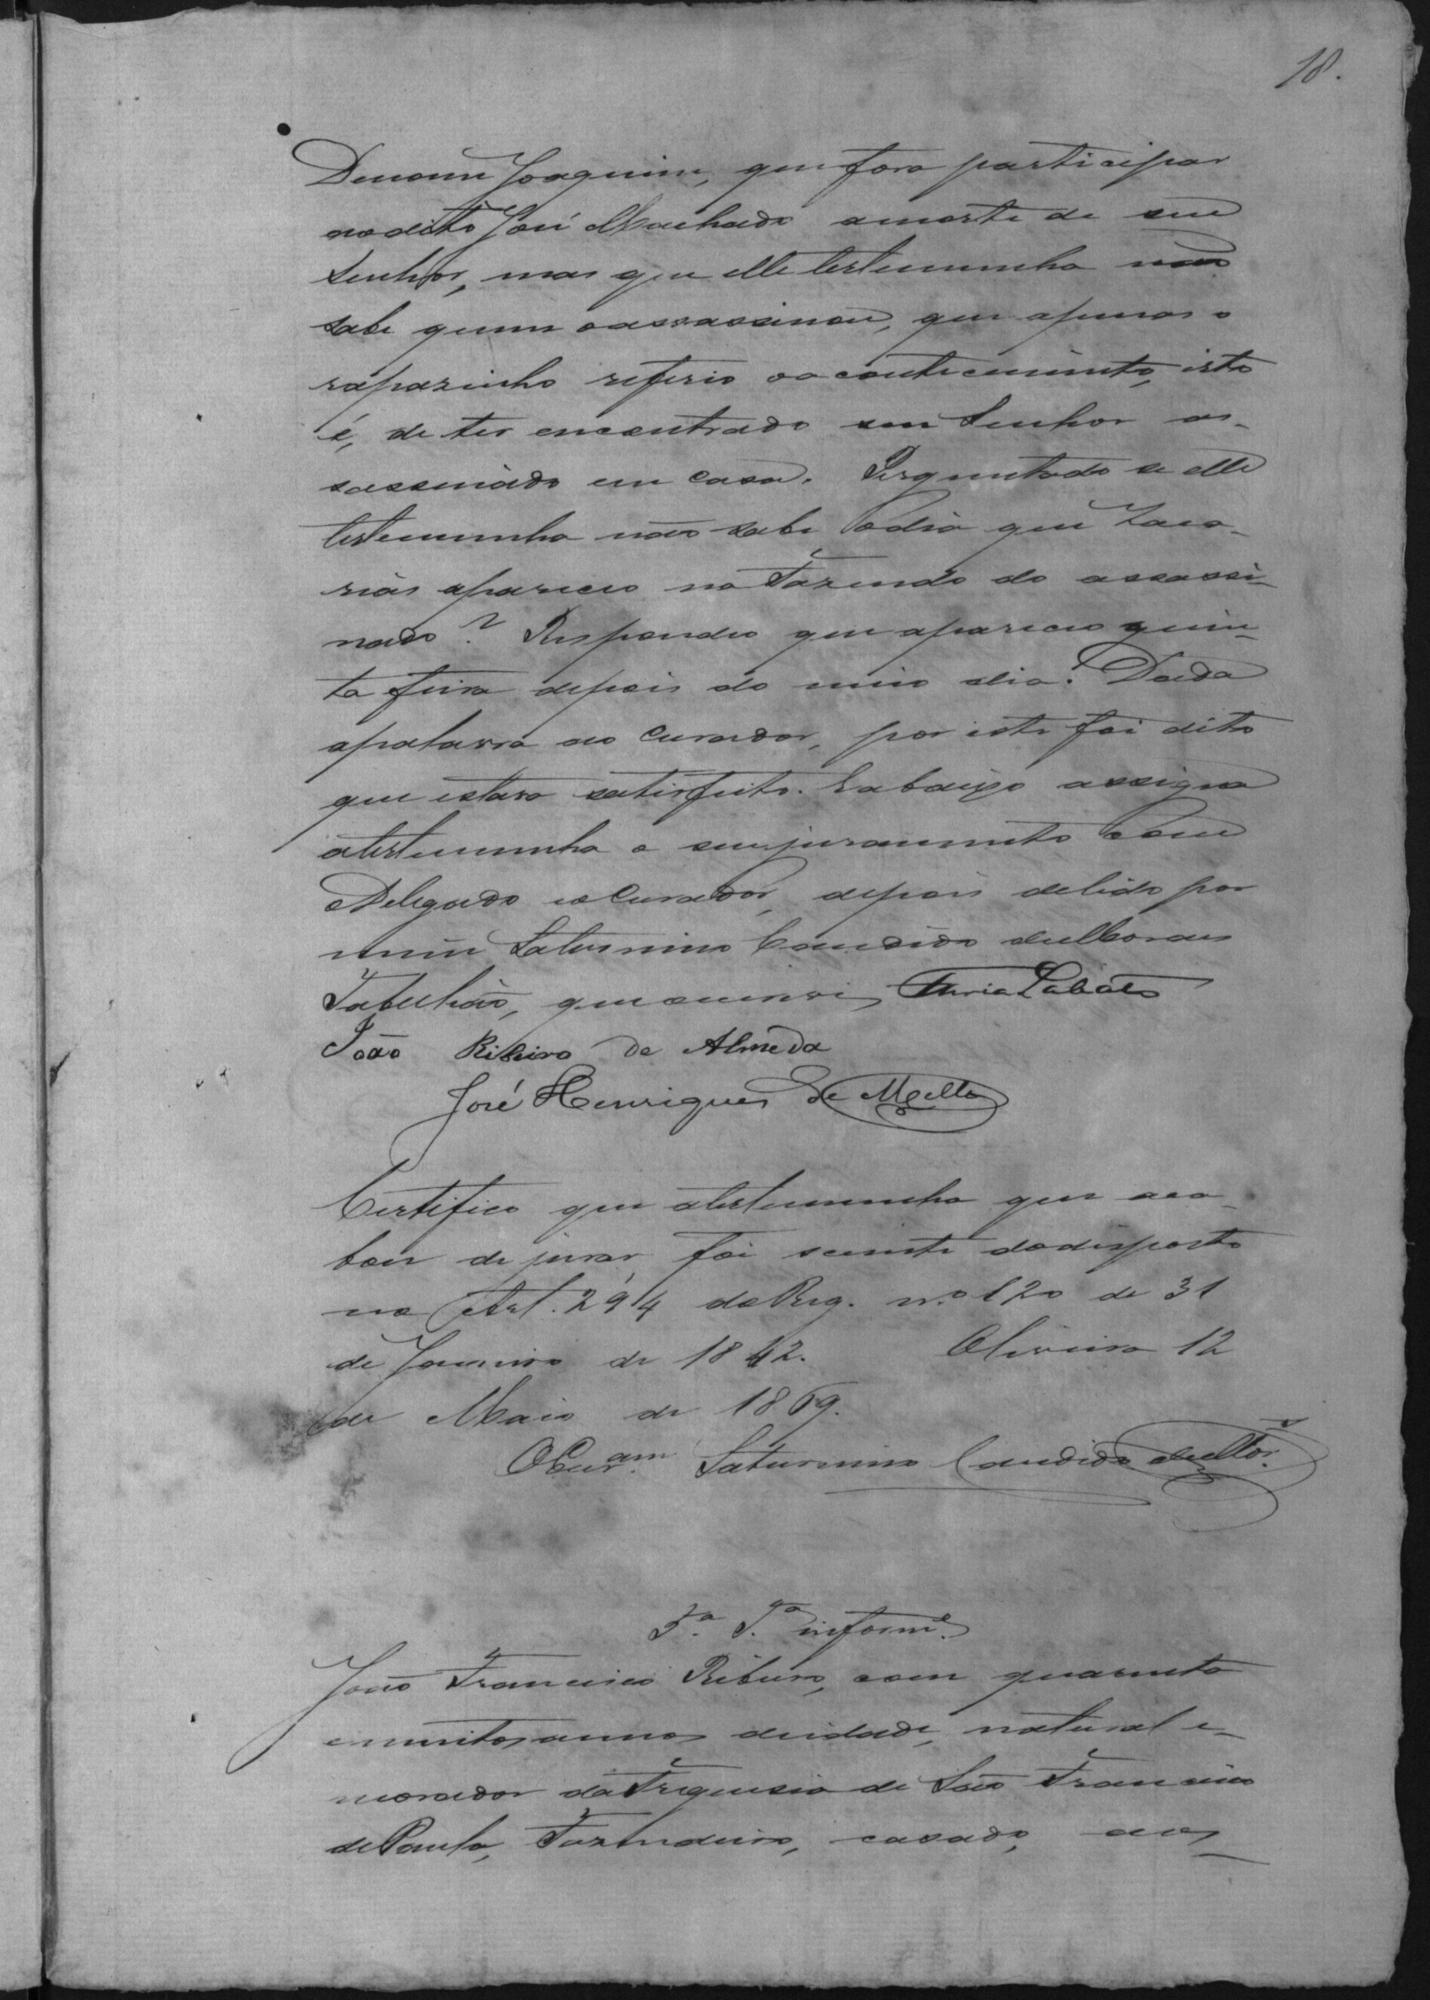 18.
de nome Joaquim, que fora participar
ao dito José Machado a morte de seu
Senhor, mas que elle testemunha não
sabe quem o assassinou, que apenas o
rapazinho referio o acontecimento, isto
é, de ter encontrado seu Senhor as-
sassinado em casa. Perguntado se elle
testemunha não sabe o dia que Zaca-
rias apareceo na Fazenda do assassi-
nado? Respondeo que apareceo quin-
ta feira depois do meio dia. Dada
apalavra ao Curador, por este foi dito
que estava satisfeito. E abaixo assigna
atestemunha o seu juramento com o
Delegado e o Curador, depois de lido por
mim Saturnino Candido de
Tabelião, que escrevi,
João Ribeiro de Almeda
José Henriques de Mello
Certifico que atestemunha que aca-
bou de jurar, foi sciente do disposto
no Art. 294 do Reg. n.o 120 de 31
de Janeiro de 1842. Oliveira 12
de Maio de 1869.
O Escr.am Saturnino Candido
5.a T.a inform.e
João Francisco Ribeiro, com quarenta
e muitos annos de idade, natural e
morador da Freguesia de São Francisco
de Paula, Fazendeiro, casado, aos